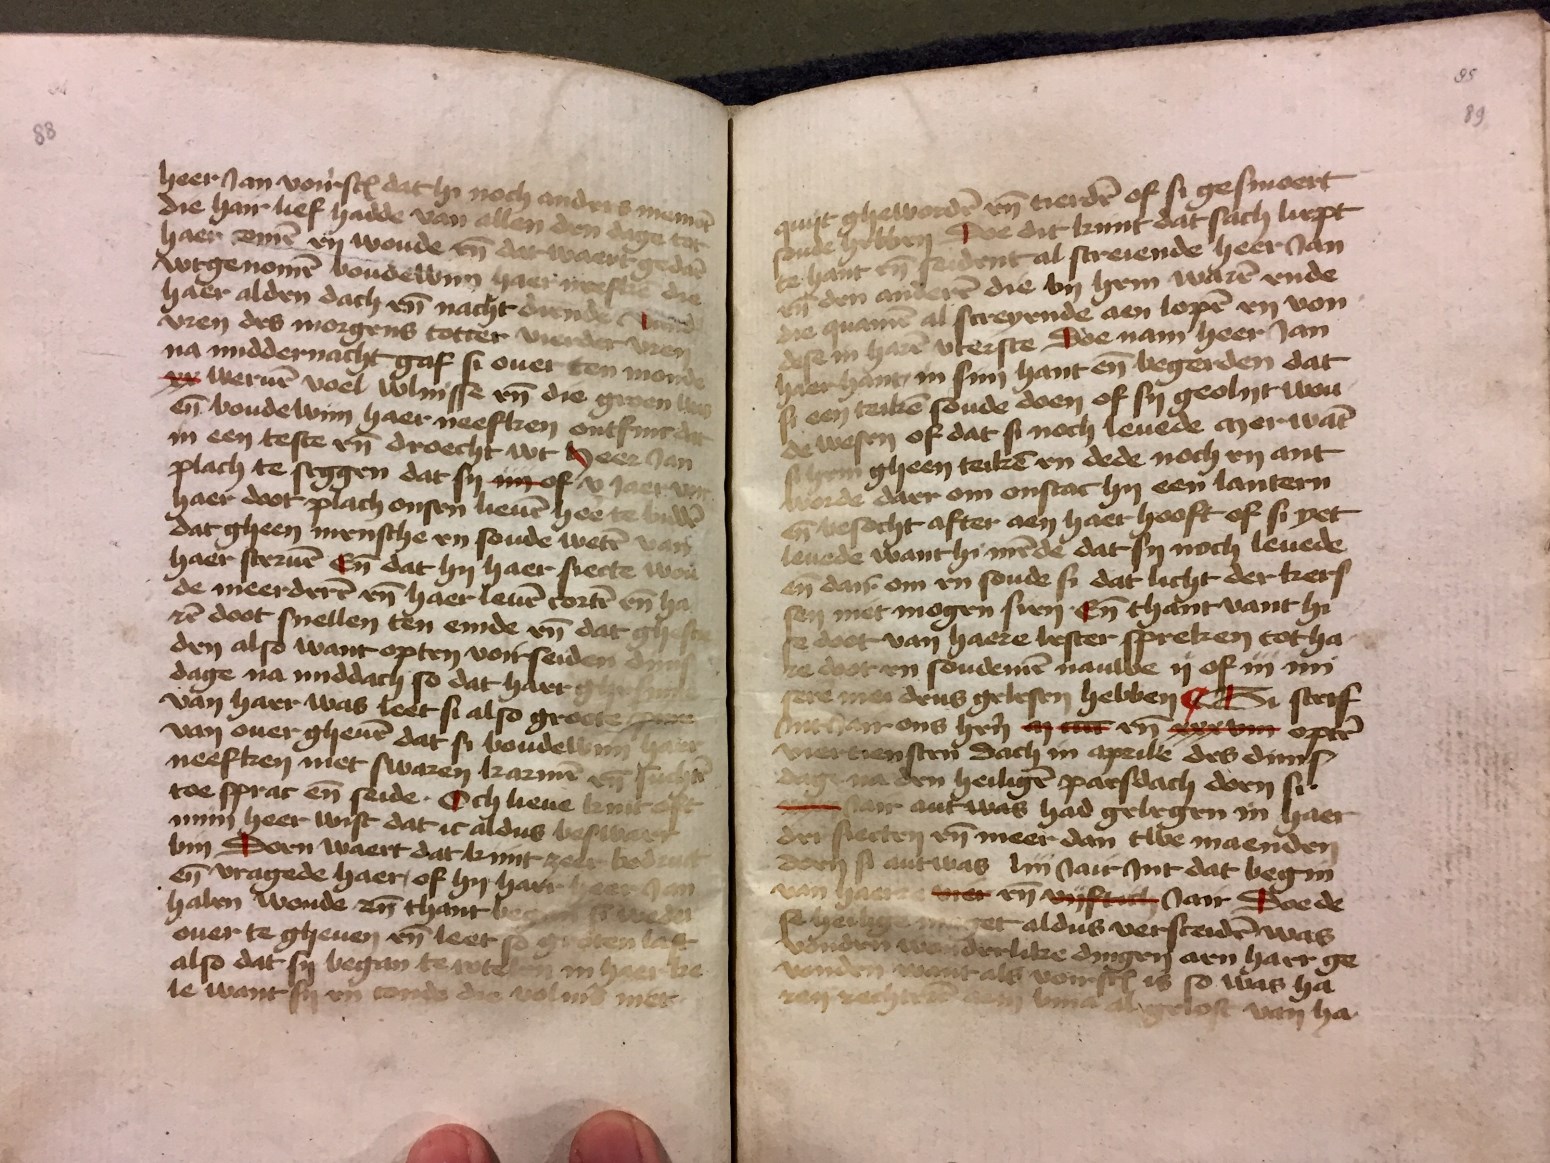 88
heer Jan voirsch dat hi noch anders niemāt
die hair lief hadde van allen dien dage tot
haer comē en woude eñ dat waert gedaē
wtgenomē boudewijn haer neefken die
haer alden dach eñ nacht diende
vren des morgens totter vierder vren
na middernacht gaf si ouer ten monde
xx weruē voel wlnisse eñ die groen was
eñ boudewijn haer neefken ontfinc dat
in een teste eñ droecht wt Heer Jan
plach te seggen dat sij iiij of v jaer vur
haer doot plach onsen lieuē he te biddē
dat gheen mensche en soude wetē van
haer steruē Eñ dat hij haer siecte wou
de meerderē eñ haer leuē cortē eñ ha
rē doot snellen ten einde eñ dat ghescie
den also want opten voirseiden dinis
dage na middach so dat haer
van haer was leet si also groete
van ouer gheuē dat si boudewijn haer
neefken met swaren karmē eñ suchtē
toe sprac eñ seide · Och lieue kint oft
mijn heer wist dat ic aldus beswaert
bin Doen waert dat kint zeer bedruct
eñ vragede haer of hij haer heer Jan
halen woude eñ thant began si weder
ouer te gheuen eñ leet so groten last
also dat sij began te rotelen in haer ke
le want sij en conde die volnis niet
85
89
quijt ghewordē eñ tierdē of si gesmoert
soude hebben Doe dit kint dat sach liept
te hant eñ seident al screiende heer Jan
eñ den anderē die bij hem warē ende
die quamē al screyende aen lopē en von
dese in harē vterste Doe nam heer Jan
haer hant in sijn hant eñ begerden dat
si een teikē soude doen of sij geolijt wou
de wesen of dat si noch leuede Mer wāt
si hem gheen teikē en dede noch en ant
worde daer om onstac hij een lantern
eñ besocht after aen haer hooft of si yet
leuede want hi mēde dat sij noch leuede
eñ dair om en soude si dat licht der kers
sen niet mogen sien Eñ thant vant hi
se doot van haere lester spreken tot ha
re doot en soudemē nauwe ij of iij
sere mei deus gelesen hebben Si sterf
Int Jair ons herē eñ optē
viertiensten dach in aprille des dinis
dage na den heiligē paesdach doen si
Jair aut was had gelegen in haer
drī siecten eñ meer dan twe maenden
doen si aut was liij Jair Int dat begin
van haere vier eñ vijftich Jair Doe de
se heilige maget aldus versceidē was
vonden wonderlike dingen aen haer ge
vonden want als voirsch is so was ha
ren rechterē aerm bina al gelost van ha